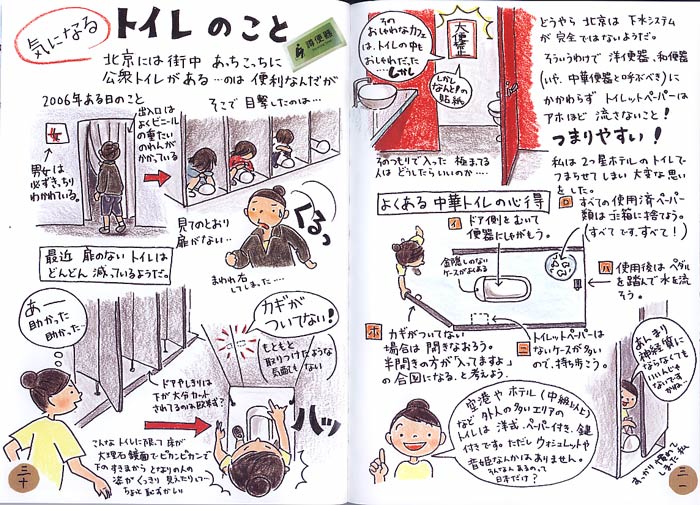 気になる
トイレのこと
蹲便器
北京には街中 あちこちに
公衆トイレがある…のは 便利なんだが
2006年ある日のこと
そこで目撃したのは…
出入口は
よくビニール
の重たい
のれんが
かかっている
男女は
必ずきっちり
わかれている。
見てのとおり
扉がない…
くるっ
まわれ右
してしまった…
最近 扉のないトイレは
どんどん 減っているようだ。
あー
助かった
助かった
ドアやしきりは
下が大分カット
されてるのは欧米?
こんなトイレに限って床が
大理石鏡面でピカピカで
下のすきまから となりの人の
姿がくっきり見えたりして…
ちょっと恥ずかしい
カギが
ついてない!
もともと
取りつけたような
気配もない
ハッ
三十
その
おしゃれなカフェ
は、トイレの中も
おしゃれだった…
しかし
大便禁止
しかし
なんと!の
貼紙
そのつもりで入った 極まってる
人は どうしたらいいのか…
どうやら 北京は 下水システム
が 完全ではないようだ。
そういうわけで 洋便器、和便器
(いや、中華便器と呼ぶべき)に
かかわらず トイレットペーパーは
アホほど 流さないこと!
つまりやすい!
私は2つ星ホテルのトイレで
つまらせてしまい 大変な思い
をした。
よくある 中華トイレの心得
イ ドア側をむいて
便器にしゃがもう。
ロ すべての使用済ペーパー
類はゴミ箱に捨てよう。
(すべてです、すべて!)
金隠しのない
ケースがよくある
ハ 使用後は ペダル
を踏んで水を流
そう。
ニ トイレットペーパーは
ないケースが多い
ので、持ち歩こう。
ホ カギがついてない
場合は 開きなおろう。
半開きの方が「入ってますよ」
の合図になる、と考えよう。
空港や ホテル(中級以上)
など 外人の多いエリアの
トイレは 洋式、ペーパー付き、鍵
付きです。ただし ウォシュレットや
音姫なんかはありません。
そんなん あるのって
日本だけ?
あんまり
神経質に
ならなくても
いいんじゃ
ないです
かね
すっかり慣れて
しまった私
三一